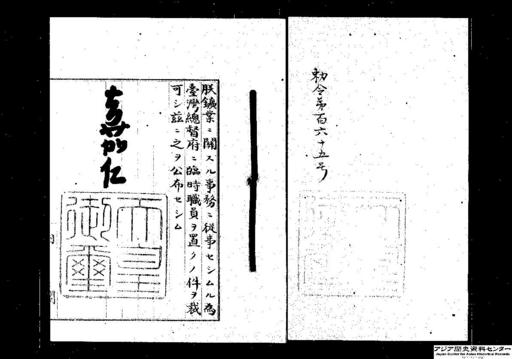 勅令第百六十五号
朕鑛業ニ關スル事務ニ從事セシムル為
臺灣總督府ニ臨時職員ヲ置クノ件ヲ裁
可シ茲ニ之ヲ公布セシム
嘉仁
天皇
御璽
内
閣
アジア歴史資料センター
Japan Center for Asian Historical Records